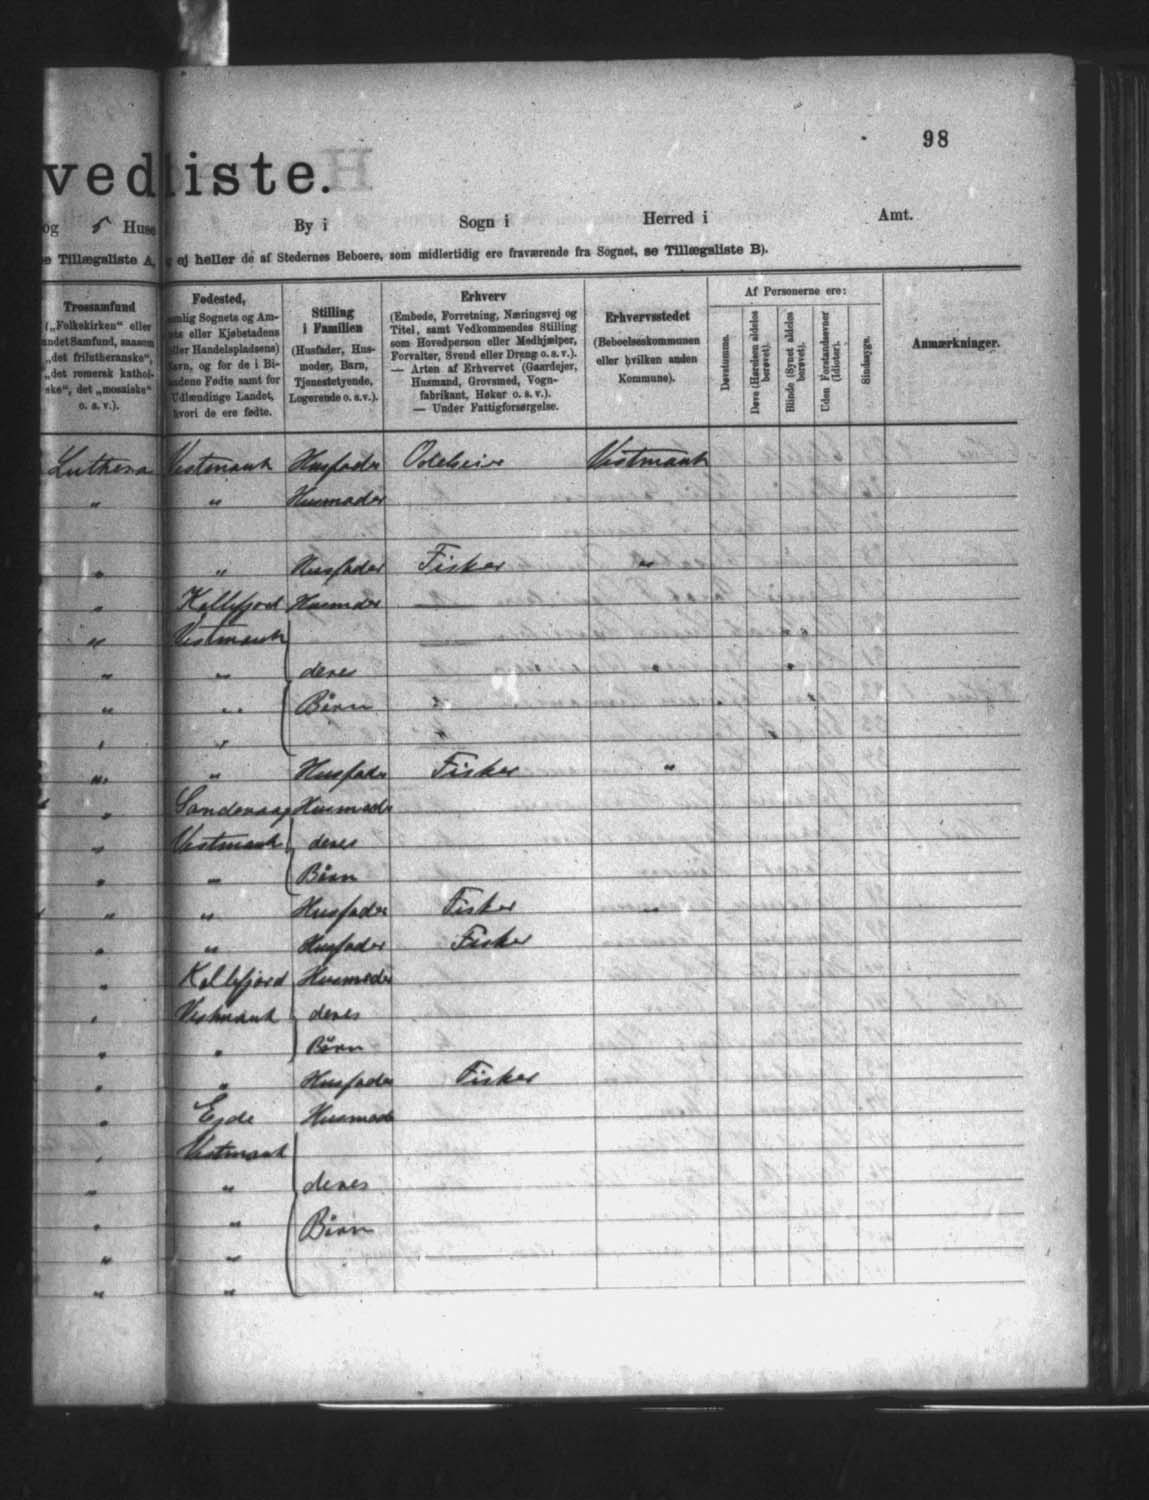 98
vedliste.
og 5 Huse By i Sogn i Herred i Amt.
e Tillægsliste A, ej heller de af Stedernes Beboere, som midlertidig ere fraværende fra Sognet, se Tillægsliste B).
Trossamfund
(„Folkekirken“ eller
andet Samfund, saasom
„det frilutheranske“,
„det romersk kathol-
ske“, det „mosaiske“
o. s. v.).
Fødested,
nemlig Sognets og Am-
ets eller Kjøbstadens
eller Handelspladsens)
Navn, og for de i Bi-
landene Fødte samt for
Udlændinge Landet,
hvori de ere fødte.
Stilling
i Familien
(Husfader, Hus-
moder, Barn,
Tjenestetyende,
Logerende o. s. v.).
Erhverv
(Embede, Forretning, Næringsvej og
Titel, samt Vedkommendes Stilling
som Hovedperson eller Medhjælper,
Forvalter, Svend eller Dreng o. s. v.).
— Arten af Erhvervet (Gaardejer,
Husmand, Grovsmed, Vogn-
fabrikant, Høker o. s. v.).
— Under Fattigforsørgelse.
Erhvervsstedet
(Beboelseskommunen
eller hvilken anden
Kommune).
Af Personerne ere:
Døvstumme.
Døve (Hørelsen aldeles
berøvet).
Blinde (Synet aldeles
berøvet).
Uden Forstandsevner
(Idioter).
Sindssyge.
Anmærkninger.
Luthera Vestmanh Husfader Vestmanh
" " Husmoder
" " Husfader Fisker "
" Kollefjord Husmoder "
" Vestmanh
" " deres
" " Børn "
" " "
" " Husfader Fisker "
" Sandevaag Husmoder
" Vestmanh deres
" " Børn
" " Husfader Fisker "
" " Husfader Fisker
" Kollefjord Husmoder
" Vestmanh deres
" " Børn
" " Husfader Fisker
" Ejde Husmode
" Vestmanh
" " deres
" " Børn
" "
" "